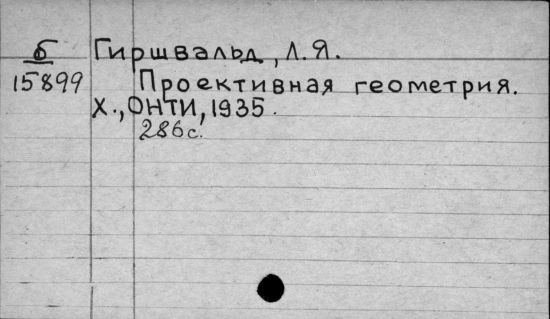 б Гиршвальд, Л.Я.
15899 Проективная геометрия.
Х., ОНТИ, 1935.
286с.